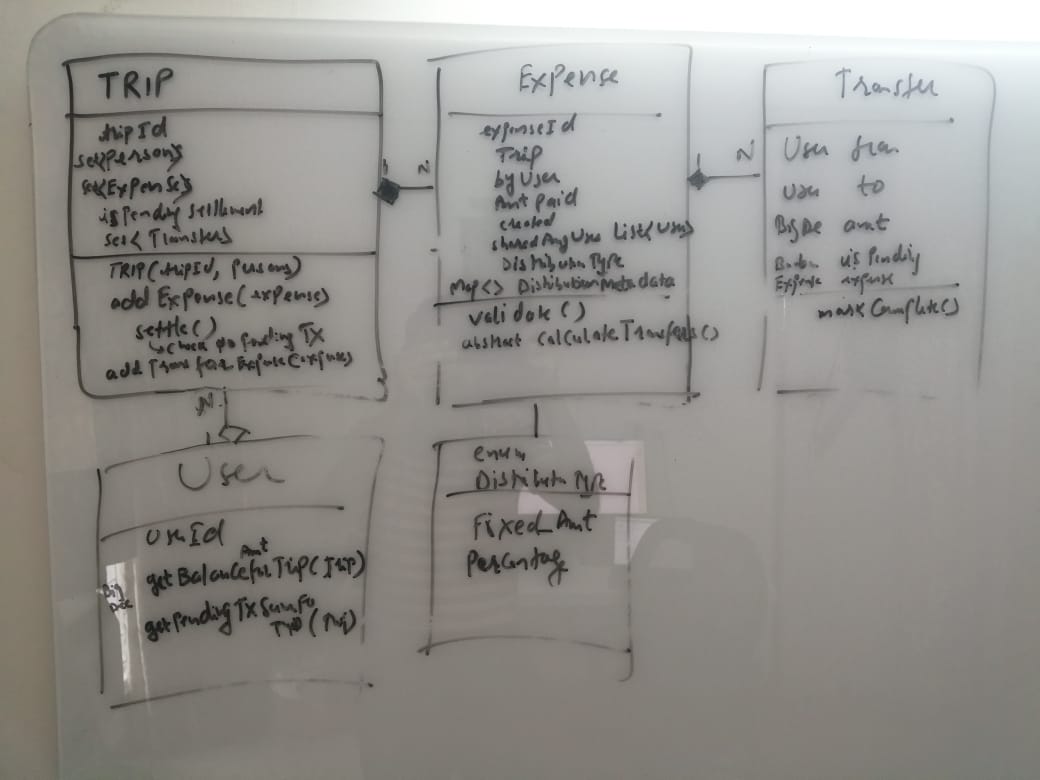 TRIP
tripId
set<person>
set<Expense>
isPending settlement
set<Transfer>
TRIP(tripId, persons)
add Expense(expense)
settle()
↳ check pending TX
add Transfer Expense(expense)
1
N
Expense
expenseId
Trip
by User
Amt paid
created
sharedAmgUser List<User>
Distributn Type
Map<> DistributionMetadata
validate()
abstract calculateTransfers()
1
N
Transfer
User from
User to
BigDe amt
isPending
Expense expense
mark Complete()
N
1
User
UserId
Amt
getBalanceforTrip(Trip)
Big
Dec
getPendingTxSumFo
enum
Distributn Type
Fixed_Amt
Percentage